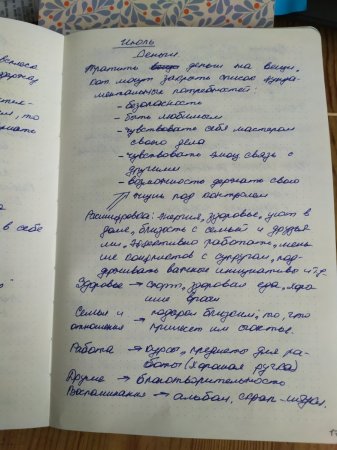 Июль
Деньги
Тратить деньги на вещи,
кот. могут закрыть список фунда-
ментальных потребностей:
- безопасность
- быть любимым
- чувствовать себя мастером
своего дела
- чувствовать эмоц. связь с
другими
- возможность держать свою
жизнь под контролем
Расшифровка: энергия, здоровье, уют в
доме, близость с семьей и друзья-
ми, эффективно работать, мень-
ше конфликтов с супругом, под-
держивать важные инициативы и т.д.
Здоровье → спорт, здоровая еда,
врачи
Семья и → подарки близким, то, что
отношения принесет им счастье.
Работа → курсы, предметы для ра-
боты (хорошая ручка)
Другие → благотворительность
Воспоминания → альбом, скрап-
в себе